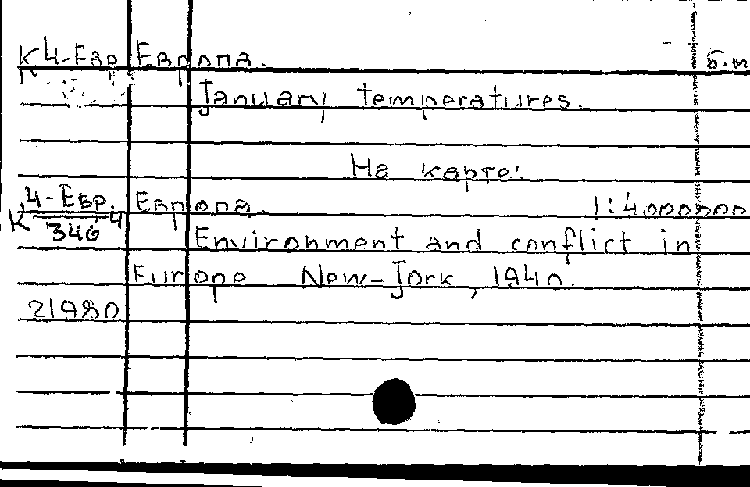 К 4-Евр Европа. Б.м
January temperatures.
На карте:
К 4-Евр. Европа 1:4000000
346
Environment and conflict in
Europe New-Jork, 1940.
21980